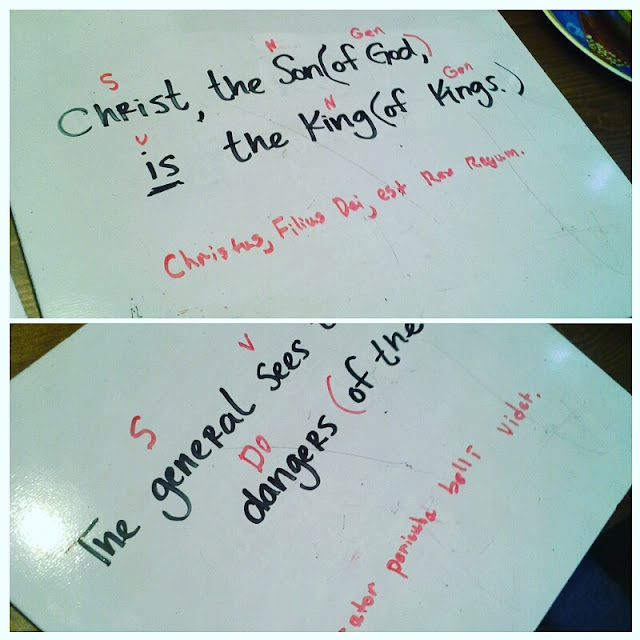 S N Gen
Christ, the Son (of God,)
V N Gen
is the King (of Kings.)
Christus, Filius Dei, est Rex Regum.
S V
The general sees
DO
dangers (of the
ator pericula belli videt.